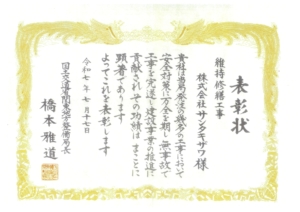 表彰状
維持修繕工事
株式会社サンタキザワ様
貴社は当局発注の多の工事において
安全対策に万全を期し無事故で
工事を完遂し建設事業の推進に
貢献されその功績はまことに
顕著であります
よってこれを表彰します
令和七年七月十七日
国土交通省関東地方整備局長
橋本雅道